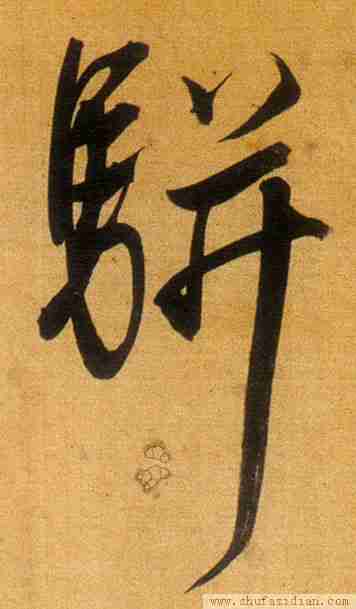 駢
www.shufazidian.com